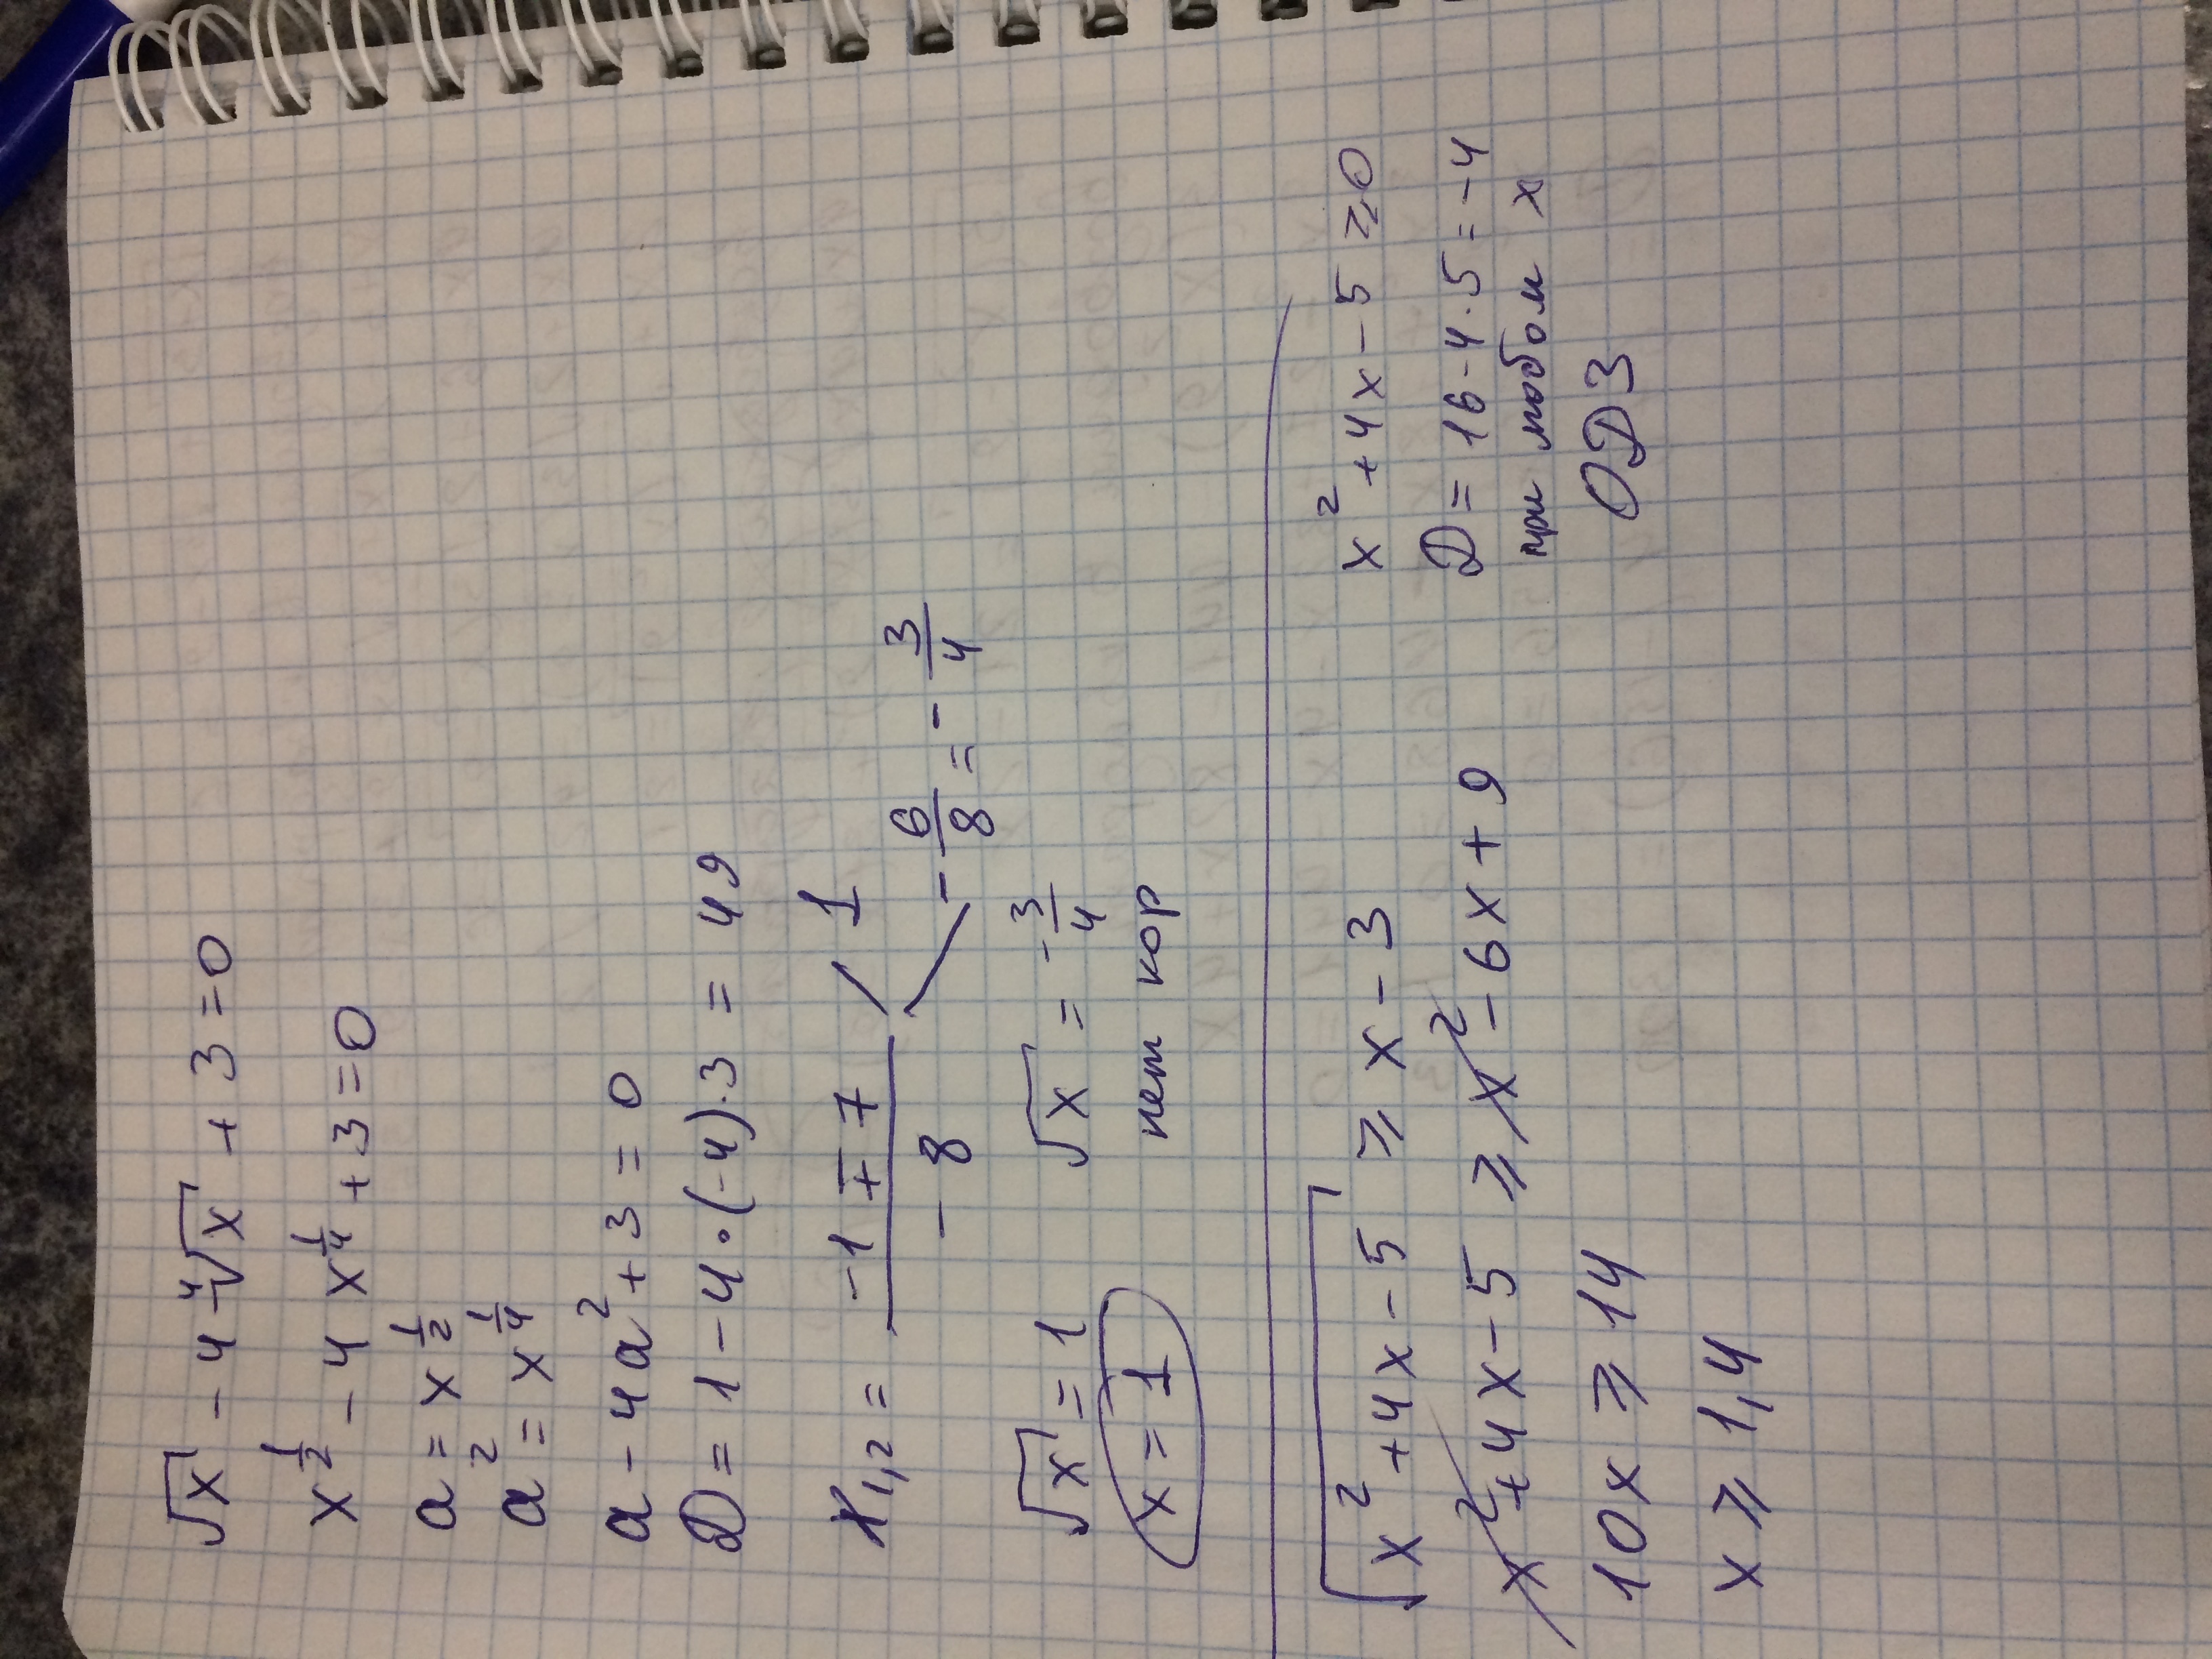 √x - 4 ⁴√x + 3 = 0
x^(1/2) - 4x^(1/4) + 3 = 0
a = x^(1/2)
a² = x^(1/4)
a - 4a² + 3 = 0
D = 1 - 4·(-4)·3 = 49
x₁,₂ = (-1 ∓ 7)/(-8)
1
-6/8 = -3/4
√x = 1
√x = -3/4
x = 1
нет кор
√(x² + 4x - 5) ⩾ x - 3
x² + 4x - 5 ⩾ x² - 6x + 9
10x ⩾ 14
x ⩾ 1,4
x² + 4x - 5 ≥ 0
D = 16 - 4·5 = -4
при любом x
ОДЗ